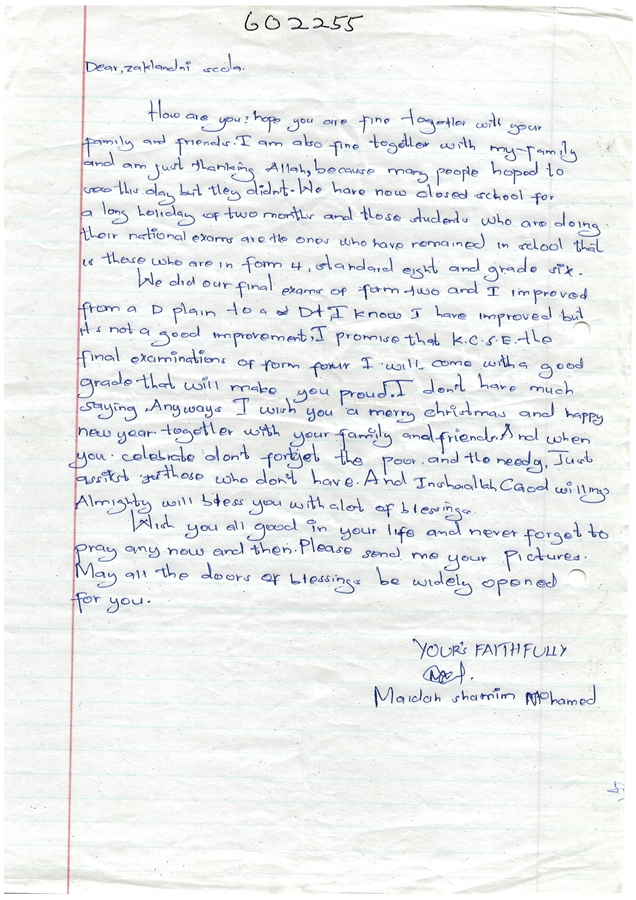 602255
Dear, zaklandni scola.
How are you? hope you are fine together with your
family and friends. I am also fine together with my family
and am just thanking Allah, because many people hoped to
see this day but they didn't. We have now closed school for
a long holiday of two months and those students who are doing
their national exams are the ones who have remained in school that
is those who are in form 4, standard eight and grade six.
We did our final exams of form two and I improved
from a D plain to a D+, I know I have improved but
it's not a good improvement. I promise that K.C.S.E. the
final examinations of form four I will come with a good
grade that will make you proud. I don't have much
saying. Anyways I wish you a merry christmas and happy
new year together with your family and friends. And when
you celebrate don't forget the poor and the needy. Just
assist those who don't have. And Inshaallah God willing
Almighty will bless you with alot of blessings.
Wish you all good in your life and never forget to
pray any now and then. Please send me your pictures.
May all the doors of blessings be widely opened
for you.
YOUR'S FAITHFULLY
Maidah shamim Mohamed